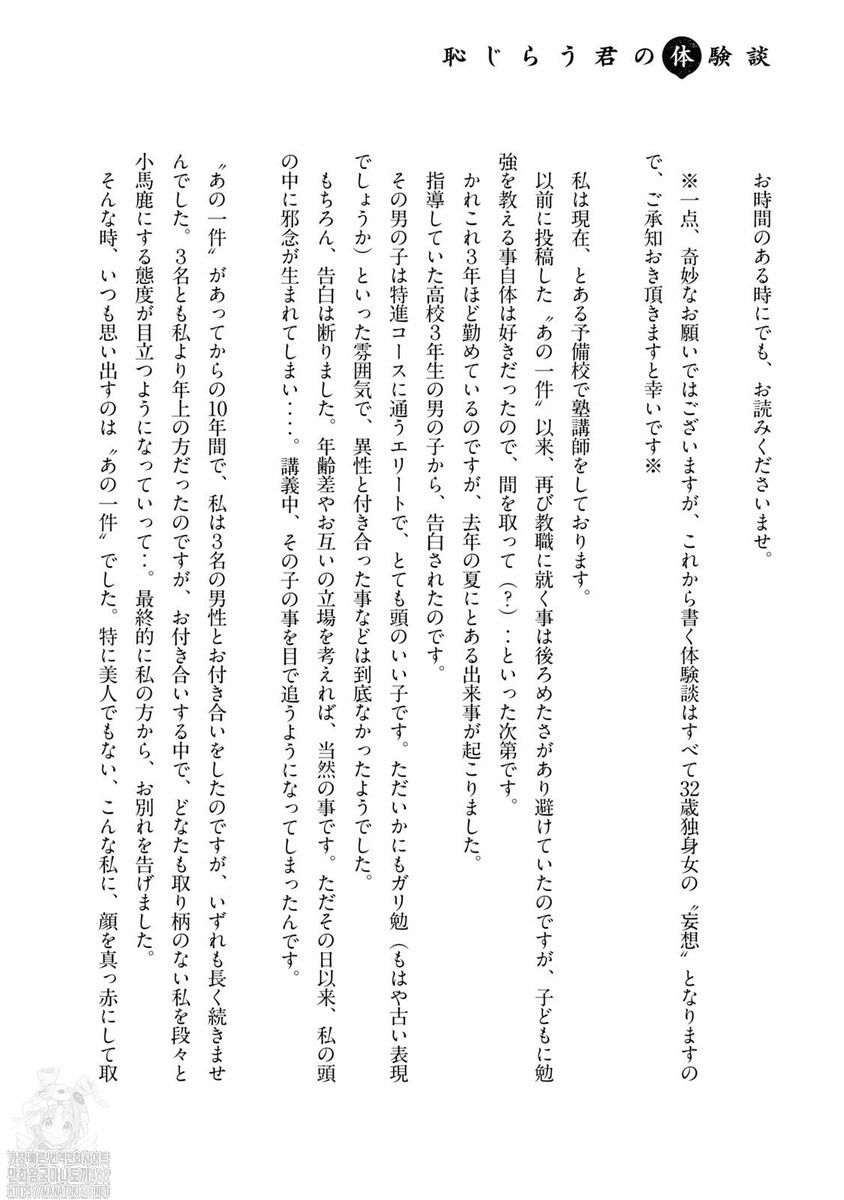 恥じらう君の体験談
お時間のある時にでも、お読みくださいませ。
※一点、奇妙なお願いではございますが、これから書く体験談はすべて32歳独身女の〝妄想〟となりますの
で、ご承知おき頂きますと幸いです※
私は現在、とある予備校で塾講師をしております。
以前に投稿した〝あの一件〟以来、再び教職に就く事は後ろめたさがあり避けていたのですが、子どもに勉
強を教える事自体は好きだったので、間を取って（？）‥といった次第です。
かれこれ３年ほど勤めているのですが、去年の夏にとある出来事が起こりました。
指導していた高校３年生の男の子から、告白されたのです。
その男の子は特進コースに通うエリートで、とても頭のいい子です。ただいかにもガリ勉（もはや古い表現
でしょうか）といった雰囲気で、異性と付き合った事などは到底なかったようでした。
もちろん、告白は断りました。年齢差やお互いの立場を考えれば、当然の事です。ただその日以来、私の頭
の中に邪念が生まれてしまい‥‥。講義中、その子の事を目で追うようになってしまったんです。
〝あの一件〟があってからの10年間で、私は３名の男性とお付き合いをしたのですが、いずれも長く続きませ
んでした。３名とも私より年上の方だったのですが、お付き合いする中で、どなたも取り柄のない私を段々と
小馬鹿にする態度が目立つようになっていって‥。最終的に私の方から、お別れを告げました。
そんな時、いつも思い出すのは〝あの一件〟でした。特に美人でもない、こんな私に、顔を真っ赤にして取
가장빠른번역만화사이트
만화왕국마나토끼467